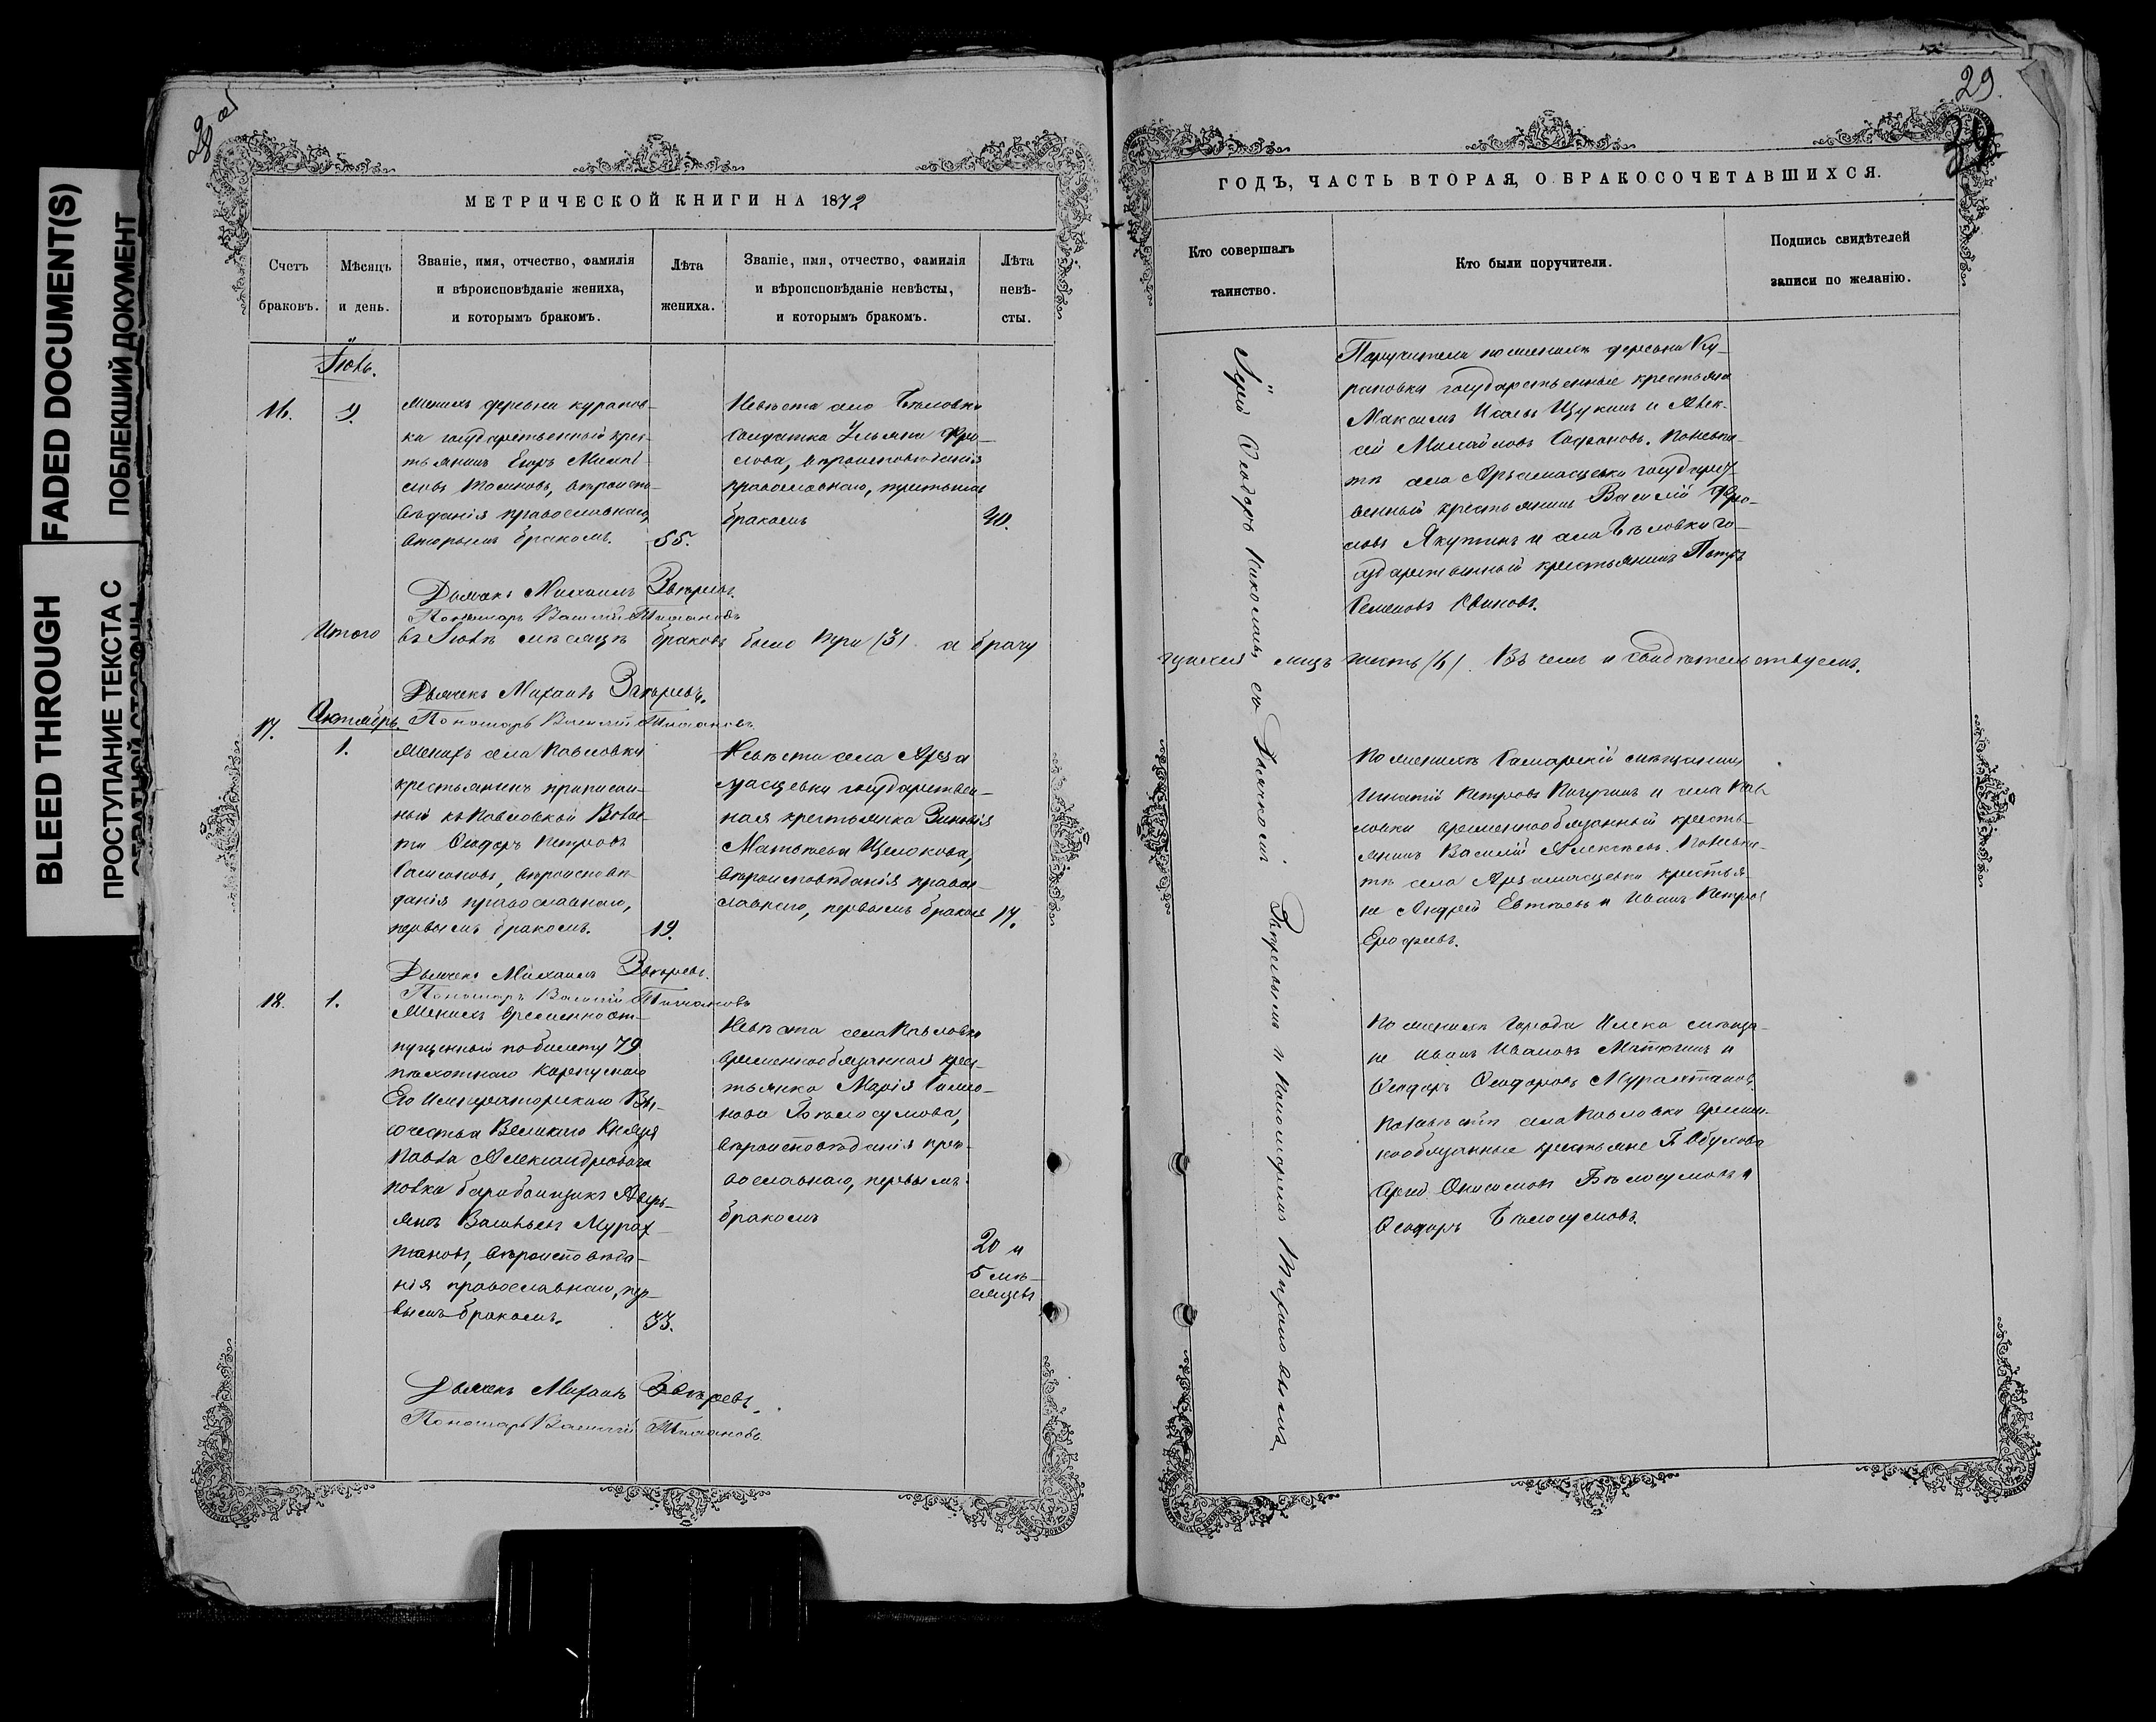 FADED DOCUMENT(S)
ПОБЛЕКШИЙ ДОКУМЕНТ
BLEED THROUGH
ПРОСТУПАНИЕ ТЕКСТА С
ОБРАТНОЙ СТОРОНЫ
28 об
МЕТРИЧЕСКОЙ КНИГИ НА 1872
Счетъ
браковъ.
Мѣсяцъ
и день.
Званіе, имя, отчество, фамилія
и вѣроисповѣданіе жениха,
и которымъ бракомъ.
Лѣта
жениха.
Званіе, имя, отчество, фамилія
и вѣроисповѣданіе невѣсты,
и которымъ бракомъ.
Лѣта
невѣ-
сты.
Іюль.
16.
9.
Женихъ деревни Курапов-
ки государственный крес-
тьянинъ Егоръ Михай-
ловъ вѣроиспо-
вѣданія православнаго,
вторымъ бракомъ.
55.
Невѣста села Бѣловки
солдатка Ульяна Фро-
лова, вѣроисповѣданія
православнаго, третьимъ
бракомъ
40.
Дьячекъ Михаилъ Звѣревъ.
Пономарь Василій
Итого въ Іюлѣ мѣсяцѣ браковъ было три (3) а брачу
Дьячекъ Михаилъ Звѣревъ.
Октябрь. Пономарь Василій
17.
1.
Женихъ села Павловки
крестьянинъ приписан-
ный къ Павловской Волос-
ти Ѳеодоръ Петровъ
Самсоновъ, вѣроисповѣ-
данія православнаго,
первымъ бракомъ.
19.
Невѣста села Арза
масцевки государствен-
ная крестьянка Зиновія
Матвѣева Щелокова,
вѣроисповѣданія право-
славнаго, первымъ бракомъ
17.
Дьячекъ Михаилъ Звѣревъ.
Пономарь Василій
18.
1.
Женихъ временно от-
пущенный по билету 79
пѣхотнаго Куринскаго
Его Императорскаго Вы-
сочества Великаго Князя
Павла Александровича
полка барабанщикъ Аверь-
янъ Васильевъ Мурах-
тановъ, вѣроисповѣда-
нія православнаго, пер-
вымъ бракомъ.
33.
Невѣста села Павловки
временнообязанная крес-
тьянка Марія Самсо-
нова Бѣлоусумова,
вѣроисповѣданія пра-
вославнаго, первымъ
бракомъ
20 и
5 мѣ-
сяцевъ
Дьячекъ Михаилъ Звѣревъ.
Пономарь Василій
29.
29
ГОДЪ, ЧАСТЬ ВТОРАЯ, О БРАКОСОЧЕТАВШИХСЯ.
Кто совершалъ
таинство.
Кто были поручители.
Подпись свидѣтелей
записи по желанію.
Іерей Ѳеодоръ Никольскій съ Дьячкомъ Звѣревымъ и Пономаремъ
Поручители по женихѣ деревни Ку-
раповки государственные крестьяне
Максимъ Щукинъ и Алек-
сѣй Михайловъ Сафоновъ. По невѣс-
тѣ села Арзамасцевки государст-
венный крестьянинъ Василій Фро-
ловъ Якутинъ и села Бѣловки го-
сударственный крестьянинъ Петръ
Семеновъ
щихся лицъ шесть (6). Въ чемъ и свидѣтельствуемъ.
По женихѣ Самарскій мѣщанинъ
Игнатій Петровъ Пичугинъ и села Пав-
ловки временнообязанный кресть-
янинъ Василій Алексѣевъ. По невѣс-
тѣ села Арзамасцевки крестья-
не Андрей Евтѣевъ и Иванъ Петровъ
Ерофеевъ.
По женихѣ Города Илека мѣща-
не Иванъ Ивановъ Матюгинъ и
Ѳеодоръ Ѳеодоровъ Мурахтановъ.
По невѣстѣ села Павловки времен-
нообязанные крестьяне
Сергѣй Бѣлоусумовъ и
Ѳеодоръ Бѣлоусумовъ.